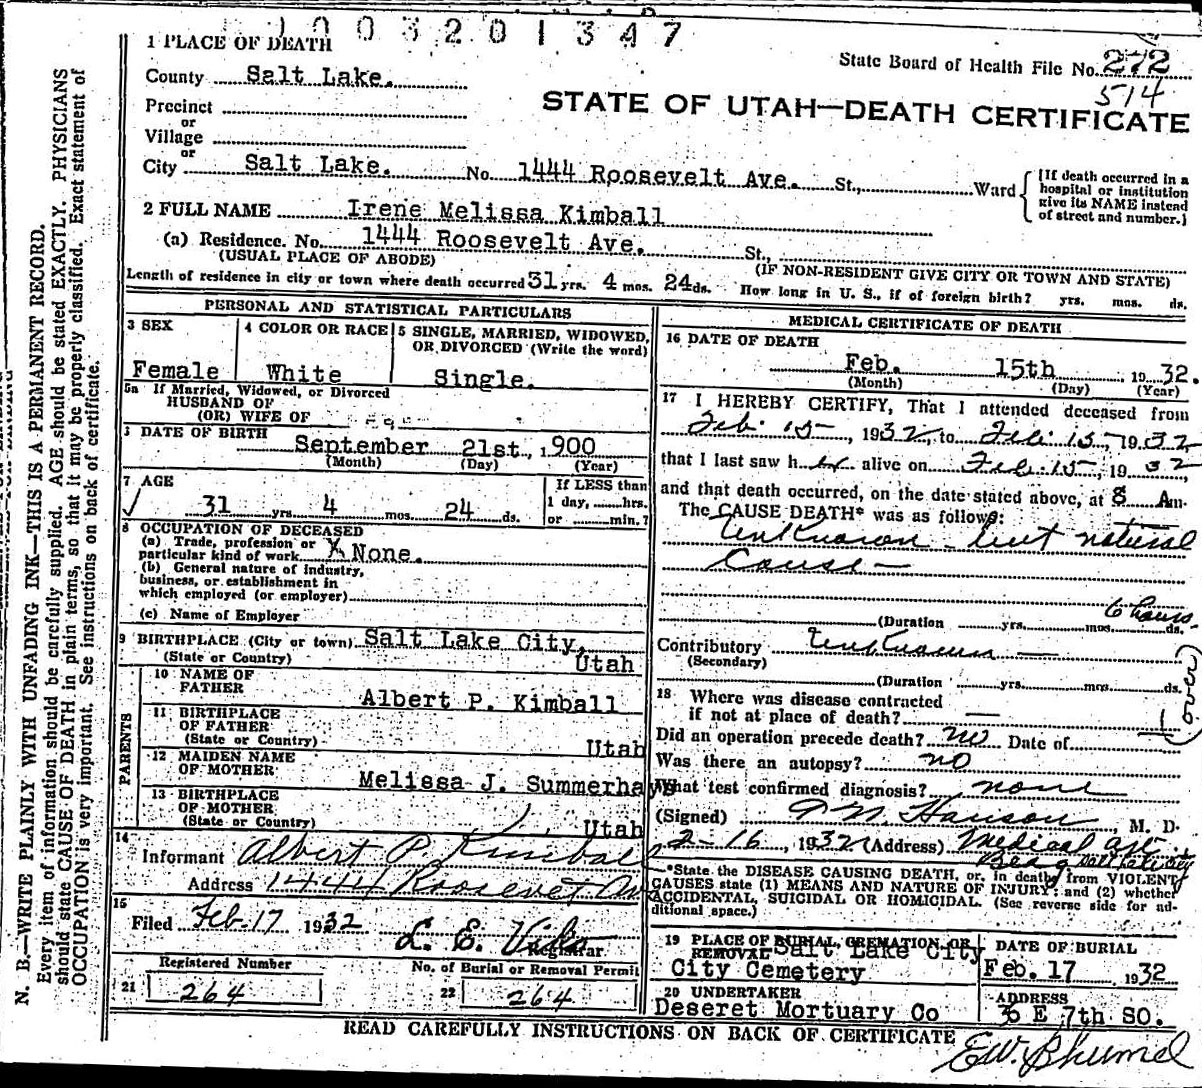 1003201347
1 PLACE OF DEATH
State Board of Health File No. 272
514
County Salt Lake.
STATE OF UTAH—DEATH CERTIFICATE
Precinct
or
Village
or
City Salt Lake. No 1444 Roosevelt Ave. St., Ward
[If death occurred in a
hospital or institution
give its NAME instead
of street and number.]
2 FULL NAME Irene Melissa Kimball
(a) Residence. No. 1444 Roosevelt Ave. St.,
(USUAL PLACE OF ABODE) (IF NON-RESIDENT GIVE CITY OR TOWN AND STATE)
Length of residence in city or town where death occurred 31 yrs. 4 mos. 24 ds. How long in U. S., if of foreign birth? yrs. mos. ds.
PERSONAL AND STATISTICAL PARTICULARS
3 SEX
Female
4 COLOR OR RACE
White
5 SINGLE, MARRIED, WIDOWED,
OR DIVORCED (Write the word)
Single.
5a If Married, Widowed, or Divorced
HUSBAND OF
(OR) WIFE OF
DATE OF BIRTH
September 21st, 1900
(Month) (Day) (Year)
7 AGE
31 yrs. 4 mos. 24 ds.
If LESS than
1 day, hrs.
or min.?
8 OCCUPATION OF DECEASED
(a) Trade, profession or
particular kind of work X None.
(b) General nature of industry,
business, or establishment in
which employed (or employer)
(c) Name of Employer
9 BIRTHPLACE (City or town) Salt Lake City,
(State or Country) Utah
PARENTS
10 NAME OF
FATHER
Albert P. Kimball
11 BIRTHPLACE
OF FATHER
(State or Country) Utah
12 MAIDEN NAME
OF MOTHER
Melissa J. Summerhays
13 BIRTHPLACE
OF MOTHER
(State or Country) Utah
14
Informant Albert P. Kimball
Address 1444 Roosevelt Ave
15
Filed Feb. 17 1932 L. E.
Registrar.
Registered Number
21 264
No. of Burial or Removal Permit
22 264
MEDICAL CERTIFICATE OF DEATH
16 DATE OF DEATH
Feb. 15th 1932.
(Month) (Day) (Year)
17 I HEREBY CERTIFY, That I attended deceased from
Feb. 15, 1932, to Feb. 15, 1932
that I last saw her alive on Feb. 15, 1932
and that death occurred, on the date stated above, at 8 Am.
The CAUSE DEATH* was as follows:
Unknown - but natural
Cause -
6 hours.
(Duration yrs. mos. ds.
Contributory Unknown —
(Secondary)
(over)
(Duration yrs. mos. ds.
18 Where was disease contracted
if not at place of death? —
Did an operation precede death? no Date of
Was there an autopsy? no
What test confirmed diagnosis? none
(Signed) Hanson, M. D.
2-16, 1932 (Address) Medical Art
Bldg Salt Lake City
*State the DISEASE CAUSING DEATH, or, in deaths from VIOLENT
CAUSES state (1) MEANS AND NATURE OF INJURY; and (2) whether
ACCIDENTAL, SUICIDAL OR HOMICIDAL. (See reverse side for ad-
ditional space.)
19 PLACE OF BURIAL, CREMATION, OR
REMOVAL Salt Lake City
City Cemetery
DATE OF BURIAL
Feb. 17 1932
20 UNDERTAKER
Deseret Mortuary Co
ADDRESS
36 E 7th SO.
READ CAREFULLY INSTRUCTIONS ON BACK OF CERTIFICATE
E.W.
N. B.—WRITE PLAINLY WITH UNFADING INK—THIS IS A PERMANENT RECORD.
Every item of information should be carefully supplied. AGE should be stated EXACTLY. PHYSICIANS
should state CAUSE OF DEATH in plain terms, so that it may be properly classified. Exact statement of
OCCUPATION is very important. See instructions on back of certificate.